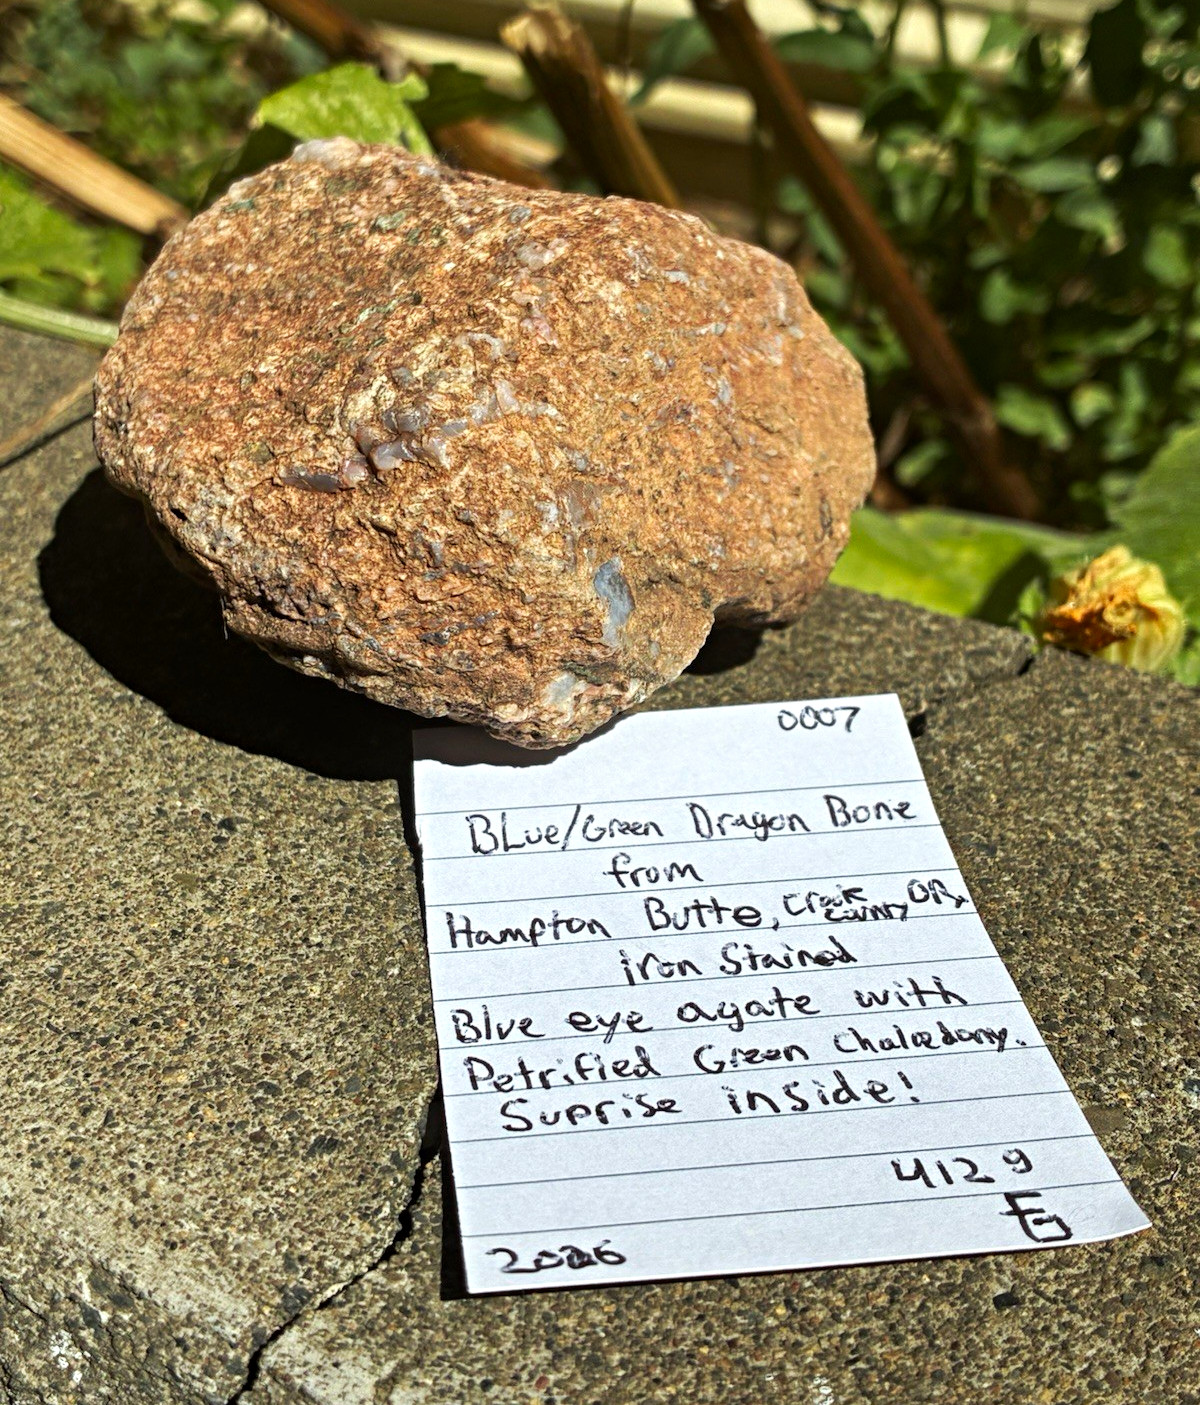 0007
BLue/Green Dragon Bone
from
Hampton Butte, Crook county OR,
iron Stained
Blue eye agate with
Petrified Green Chalcedony.
Suprise inside!
412 g
2026